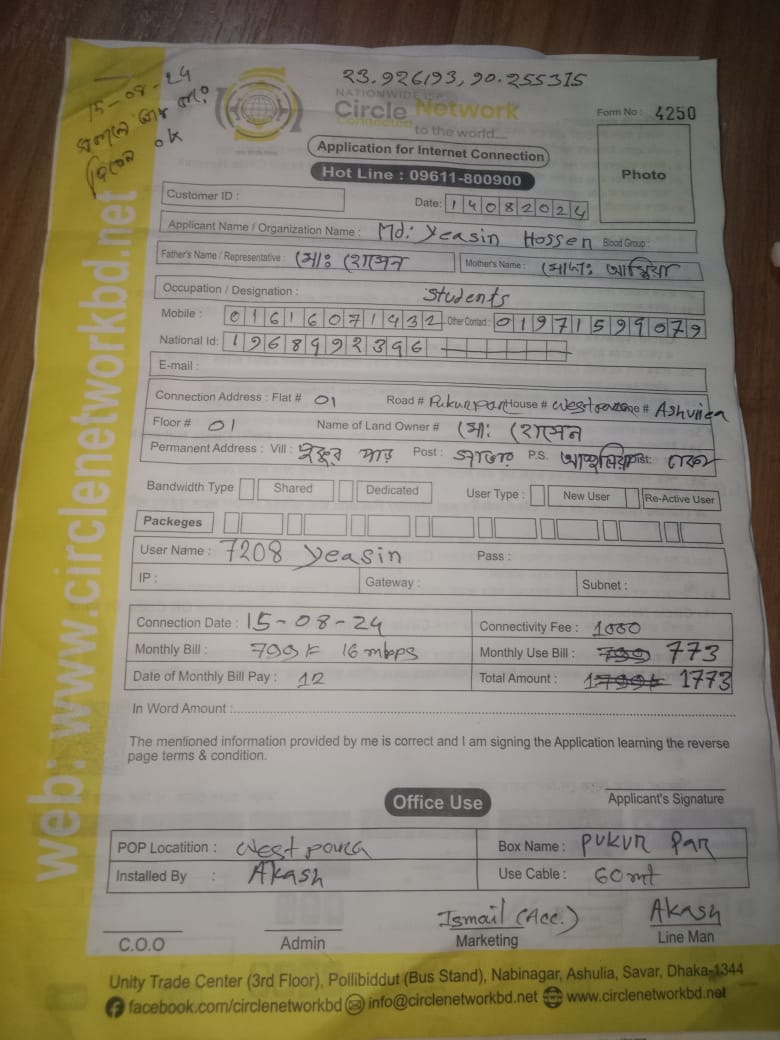 15-08-24
ok
23.926193, 90.255315
NATIONWIDE ISP
Circle Network
Connected to the world....
Form No : 4250
Application for Internet Connection
Hot Line : 09611-800900
Photo
Customer ID :
Date: 14082024
Applicant Name / Organization Name : Md: Yeasin Hossen Blood Group :
Father's Name / Representative : মোঃ হোসেন Mother's Name : মোসাঃ আম্বিয়া
Occupation / Designation : Students
Mobile : 01616071432 Other Contact : 01971599079
National Id: 1968992396
E-mail :
Connection Address : Flat # 01 Road # Pukurpar House # West poura Zone # Ashuliea
Floor # 01 Name of Land Owner # মো: হোসেন
Permanent Address : Vill : পুকুর পাড় Post : সাভার P.S. আশুলিয়া Dist: ঢাকা
Bandwidth Type Shared Dedicated User Type : New User Re-Active User
Packeges
User Name : 7208 Yeasin Pass :
IP : Gateway : Subnet :
Connection Date : 15-08-24 Connectivity Fee : 1000
Monthly Bill : 799 16 mbps Monthly Use Bill : 799 773
Date of Monthly Bill Pay : 12 Total Amount : 1799 1773
In Word Amount :
The mentioned information provided by me is correct and I am signing the Application learning the reverse
page terms & condition.
Applicant's Signature
Office Use
POP Locatition : West poura Box Name : PUKUR Par
Installed By : Akash Use Cable : 60mt
Ismail (Acc.) Akash
C.O.O Admin Marketing Line Man
Unity Trade Center (3rd Floor), Pollibiddut (Bus Stand), Nabinagar, Ashulia, Savar, Dhaka-1344
facebook.com/circlenetworkbd info@circlenetworkbd.net www.circlenetworkbd.net
web: www.circlenetworkbd.net